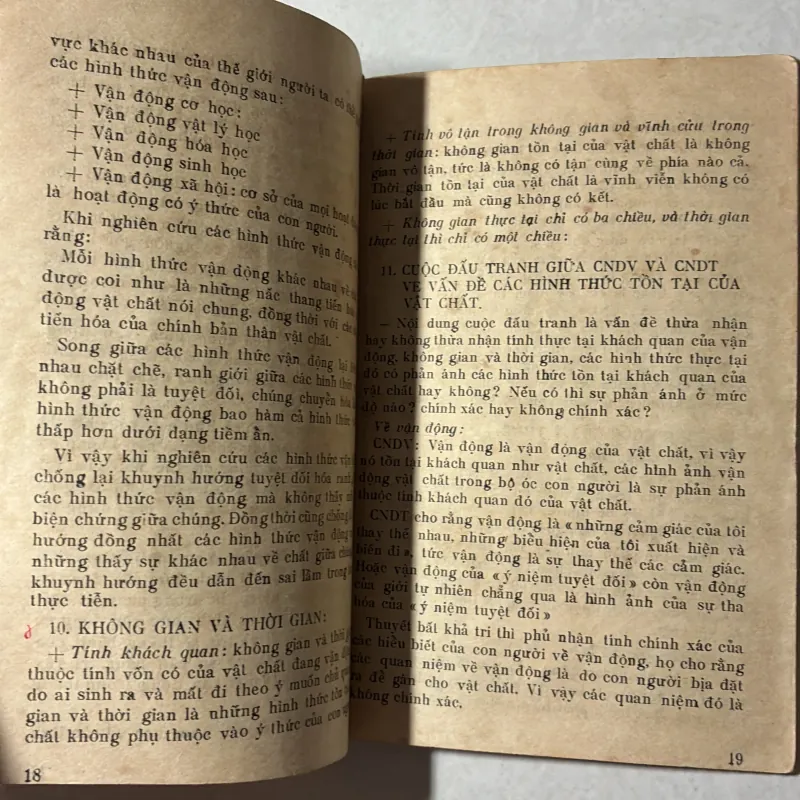 vực khác nhau của thế giới người ta có thể
các hình thức vận động sau:
+ Vận động cơ học:
+ Vận động vật lý học
+ Vận động hóa học
+ Vận động sinh học
+ Vận động xã hội: cơ sở của mọi hoạt
là hoạt động có ý thức của con người.
Khi nghiên cứu các hình thức vận động
rằng:
Mỗi hình thức vận động khác nhau
được coi như là những nấc thang tiến
động vật chất nói chung, đồng thời với
tiến hóa của chính bản thân vật chất.
Song giữa các hình thức vận động lại
nhau chặt chẽ, ranh giới giữa các hình thức
không phải là tuyệt đối, chúng chuyển hóa
hình thức vận động bao hàm cả hình thức
thấp hơn dưới dạng tiềm ẩn.
Vì vậy khi nghiên cứu các hình thức vận
chống lại khuynh hướng tuyệt đối hóa ranh
các hình thức vận động mà không thấy
biện chứng giữa chúng. Đồng thời cũng chống
hướng đồng nhất các hình thức vận động
những thấy sự khác nhau về chất giữa
khuynh hướng đều dẫn đến sai lầm trong
thực tiễn.
10. KHÔNG GIAN VÀ THỜI GIAN:
+ Tính khách quan: không gian và thời
thuộc tính vốn có của vật chất đang vận
do ai sinh ra và mất đi theo ý muốn chủ
gian và thời gian là những hình thức tồn
chất không phụ thuộc vào ý thức của con
18
+ Tính vô tận trong không gian và vĩnh cửu trong
thời gian: không gian tồn tại của vật chất là không
gian vô tận, tức là không có tận cùng về phía nào cả.
Thời gian tồn tại của vật chất là vĩnh viễn không có
lúc bắt đầu mà cũng không có kết.
+ Không gian thực tại chỉ có ba chiều, và thời gian
thực tại thì chỉ có một chiều:
11. CUỘC ĐẤU TRANH GIỮA CNDV VÀ CNDT
VỀ VẤN ĐỀ CÁC HÌNH THỨC TỒN TẠI CỦA
VẬT CHẤT.
— Nội dung cuộc đấu tranh là vấn đề thừa nhận
hay không thừa nhận tính thực tại khách quan của vận
động, không gian và thời gian, các hình thức thực tại
đó có phản ánh các hình thức tồn tại khách quan của
vật chất hay không? Nếu có thì sự phản ánh ở mức
độ nào? chính xác hay không chính xác?
Về vận động:
CNDV: Vận động là vận động của vật chất, vì vậy
nó tồn tại khách quan như vật chất, các hình ảnh vận
động vật chất trong bộ óc con người là sự phản ánh
thuộc tính khách quan đó của vật chất.
CNDT cho rằng vận động là «những cảm giác của tôi
thay thế nhau, những biểu hiện của tôi xuất hiện và
biến đi», tức vận động là sự thay thế các cảm giác.
Hoặc vận động của «ý niệm tuyệt đối» còn vận động
của giới tự nhiên chẳng qua là hình ảnh của sự tha
hóa của «ý niệm tuyệt đối»
Thuyết bất khả tri thì phủ nhận tính chính xác của
các hiểu biết của con người về vận động, họ cho rằng
các quan niệm về vận động là do con người bịa đặt
ra để gán cho vật chất. Vì vậy các quan niệm đó là
không chính xác.
19